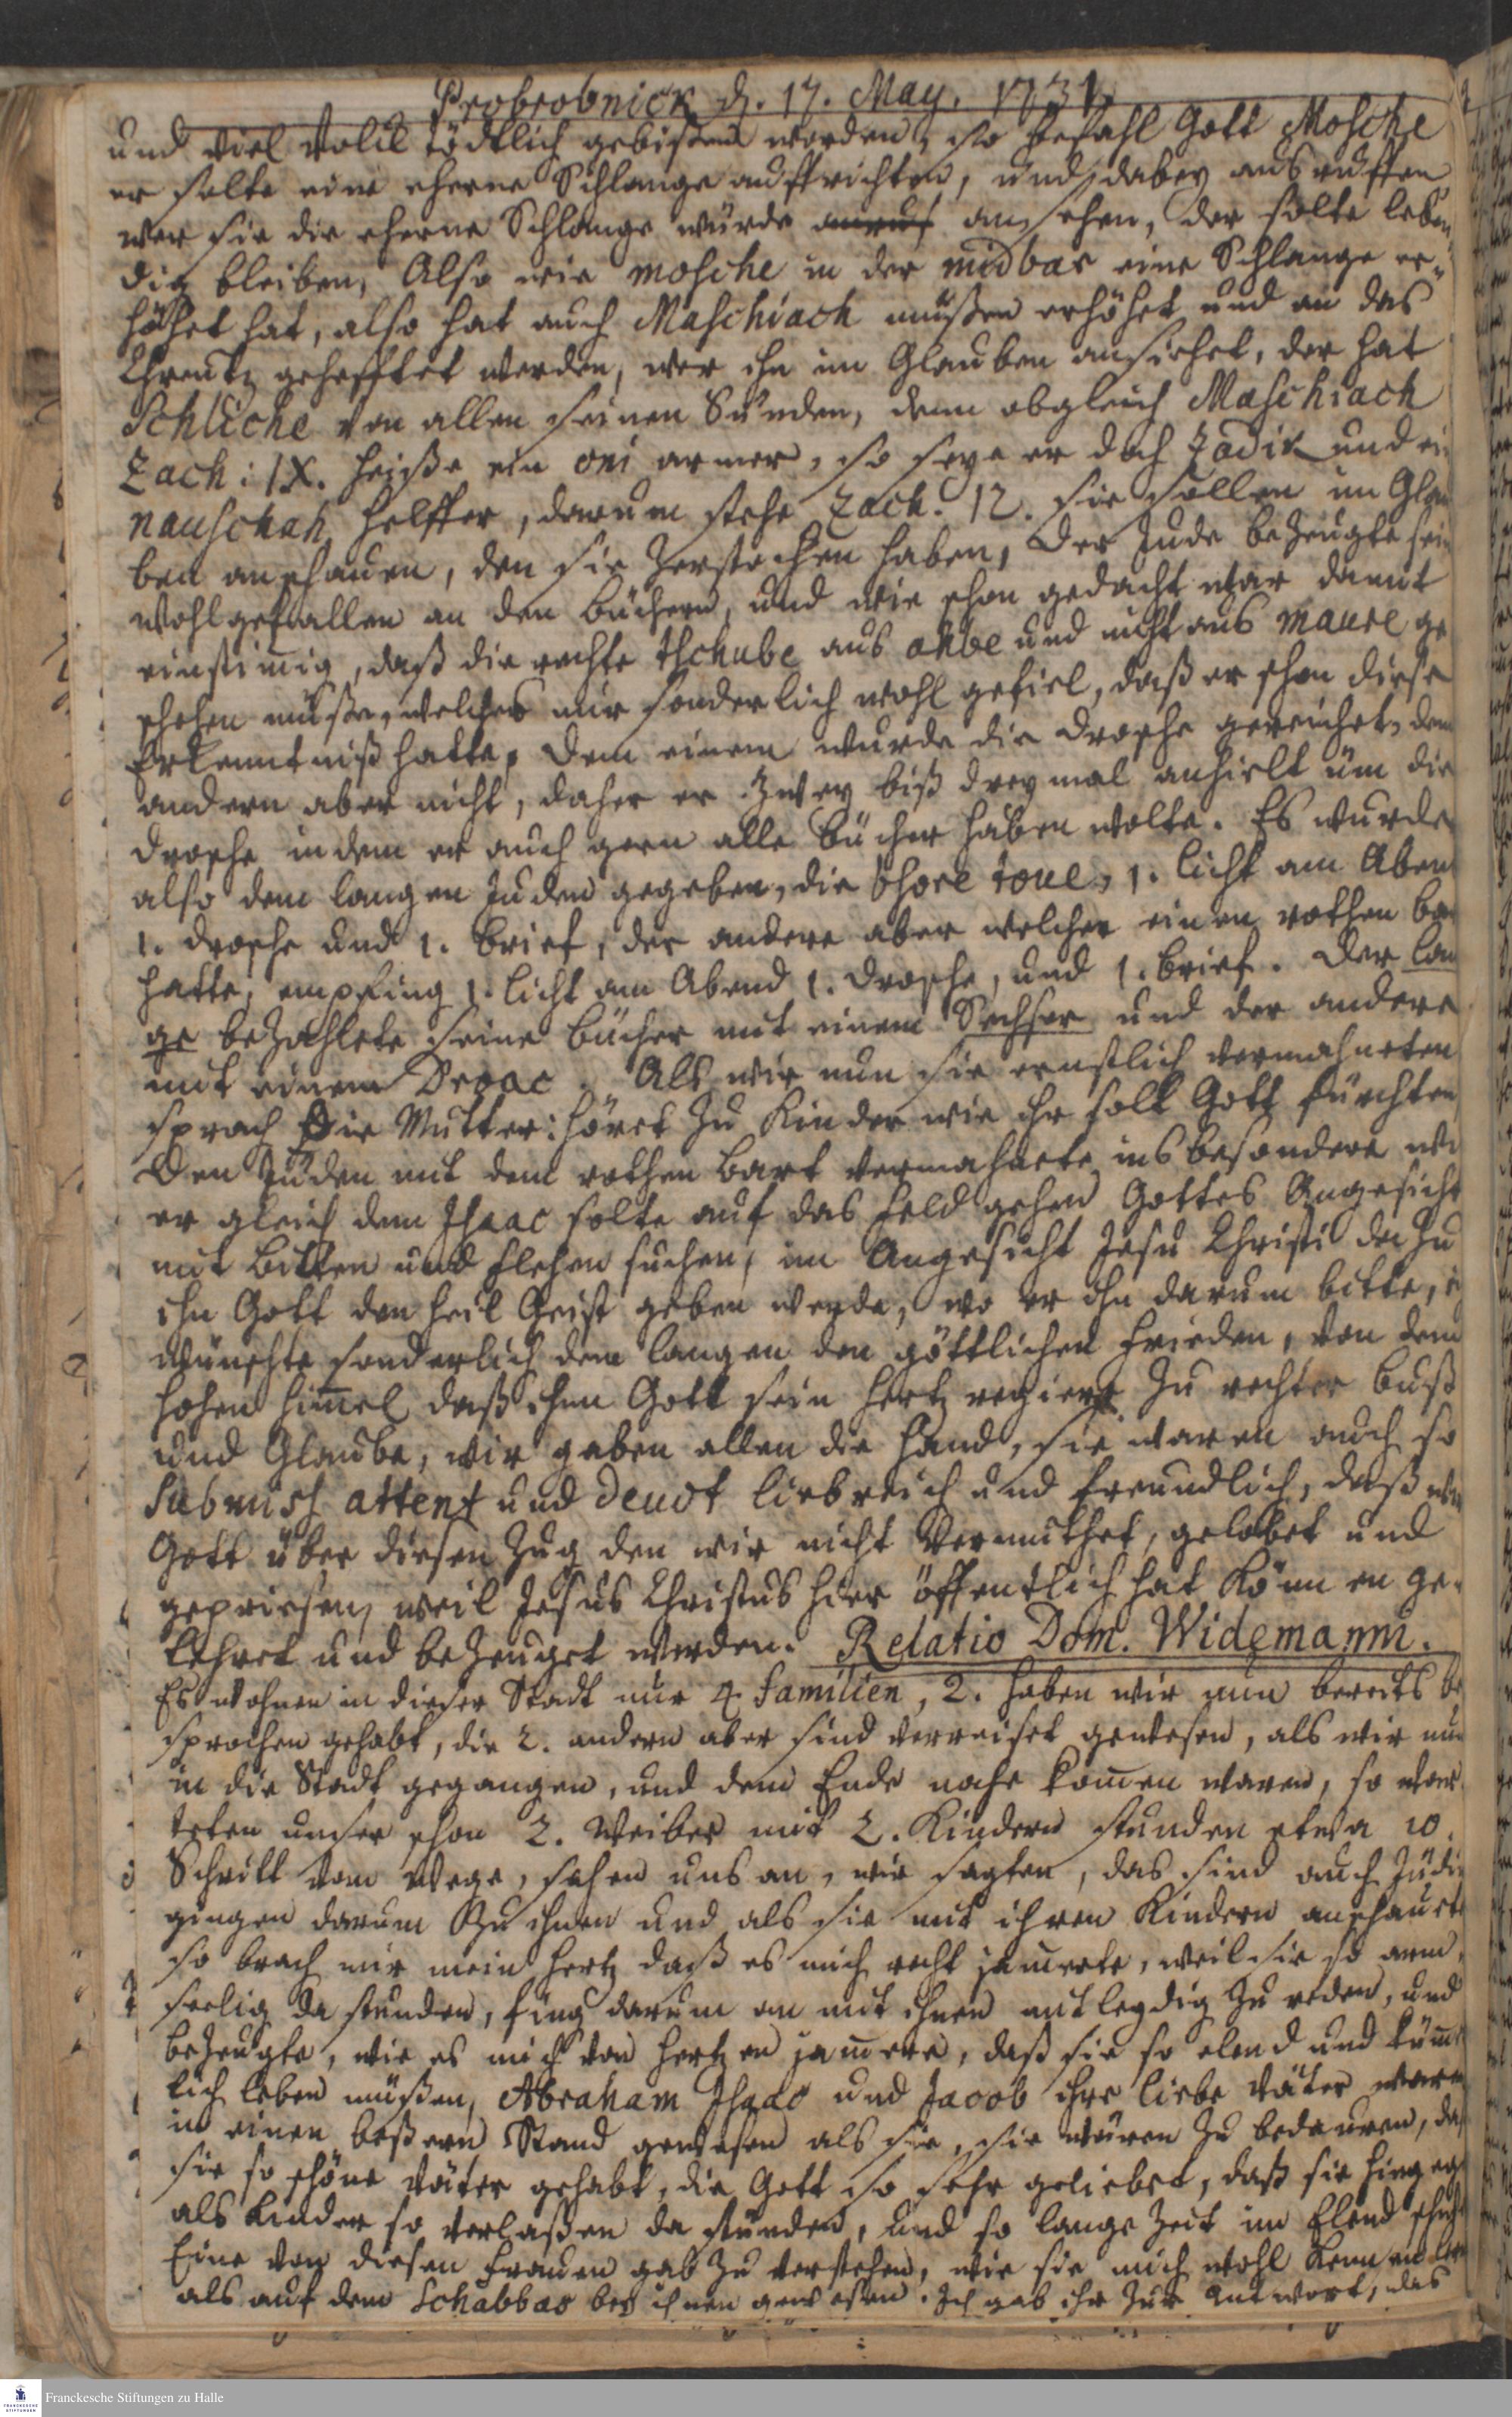 Probrobnick d. 17. May. 1731.
und viel Volck tödtlich gebißen worden, so befahl Gott Mosche
er solte eine eherne Schlange auffrichten, und dabey ausruffen
wer sie die eherne Schlange würde ansehen, der solte leben
dig bleiben, Also wie mosche in der midbar eine Schlange er-
höhet hat, also hat auch Maschiach müßen erhöhet und an das
Chreutz gehefftet werden, wer ihn im Glauben ansiehet, der hat
Schliche von allen seinen Sünden, denn obgleich Maschiach
Zach: IX. heiße ein oni armer, so seye er doch zadik und ein
nauschah helffer, darum stehe Zach. 12. sie sollen im Glau
ben anschauen, den sie zerstochen haben, Der Jude bezeugte sein
wohlgefallen an den büchern, und wie schon gedacht war damit
einstimig, daß die rechte tschube aus ahbe und nicht aus maure ge
schehen müße, welches mir sonderlich wohl gefiel, daß er schon diese
Erkenntniß hatte, dem einem wurde die drosche gereichet, dem
andern aber nicht, daher er zwey biß dreymal anhielt üm die
drosche indem er auch gern alle bücher haben wolte. Es wurde
also dem langen Juden gegeben, die thore toue, 1. licht am Aben
1. drosche und 1. brief, der andere aber welcher einen rothen ba
hatte, empfing 1. licht am Abend 1. drosche, und 1. brief. Der lan
ge bezahlete seine bücher mit einem Sechser und der andere
mit einem . Als wir nun sie ernstlich vermahneten
sprach die Mutter: höret zu Kinder wie ihr solt Gott fürchten
Den Juden mit dem rothen bart vermahnete insbesondere wi
er gleich dem Isaac solte auf das feld gehen Gottes Angesicht
mit bitten und flehen suchen, im Angesicht Jesu Christi dazu
ihn Gott den heil Geist geben werde, wo er ihn darum bitte,
wünschte sonderlich dem langen den göttlichen frieden, von dem
hohen himel daß ihm Gott sein hertz regiere zu rechter buß
und Glaube, wir gaben allen die hand, sie waren auch so
submiss attent und devot liebreich und freundlich, daß wir
Gott über diesen Zug den wir nicht vermuthet, gelobet und
gepriesen, weil Jesus Christus hier öffentlich hat können ge-
lehret und bezeuget werden. Relatio Dom. Widemanni.
Es wohnen in dieser Stadt nur 4. familien, 2. haben wir nun bereits be
sprochen gehabt, die 2. andern aber sind verreiset gewesen, als wir nun
in die Stadt gegangen, und dem Ende nahe komen waren, so war
teten unser schon 2. Weiber mit 2. Kindern stunden etwa 10.
Schritt vom Wege, sahen uns an, wir sagten, das sind auch Jüdi
gingen darum zu ihnen und als sie mit ihren Kindern anschaute
so brach mir mein hertz daß es mich recht jamerte, weil sie so arm,
seelig da stunden, fing darum an mit ihnen mitleydig zu reden, und
bezeugte, wie es mich von hertzen jamere, daß sie so elend und küme
lich leben müßen, Abraham Isaac und Jacob ihre liebe Väter waren
in einen beßern Stand gewesen als sie, sie wären zu bedauren, daß
sie so schöne Väter gehabt, die Gott so sehr geliebet, daß sie hingeg
als Kinder so verlaßen da stünden, und so lange Zeit im Elend
Eine von diesen frauen gab zu verstehen, wie sie mich wohl kennen
als auf dem Schabbas bey ihnen gewesen. Ich gab ihr zur Antwort, das
Franckesche Stiftungen zu Halle